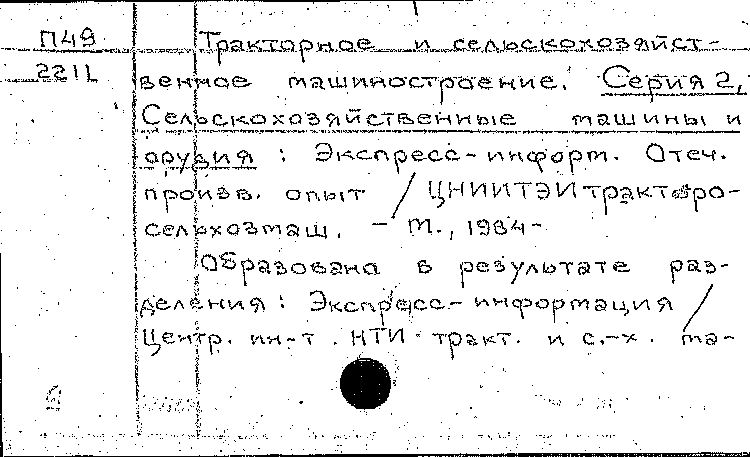 П49 Тракторное и сельскохозяйст-
221L венное машиностроение. Серия 2,
Сельскохозяйственные машины и
орудия : Экспресс-информ. Отеч.
произв. опыт / ЦНИИТЭИтракторо-
сельхозмаш. - М., 1984-
Образована в результате раз-
деления : Экспресс-информация /
Центр. ин-т. НТИ тракт. и с.-х. ма-